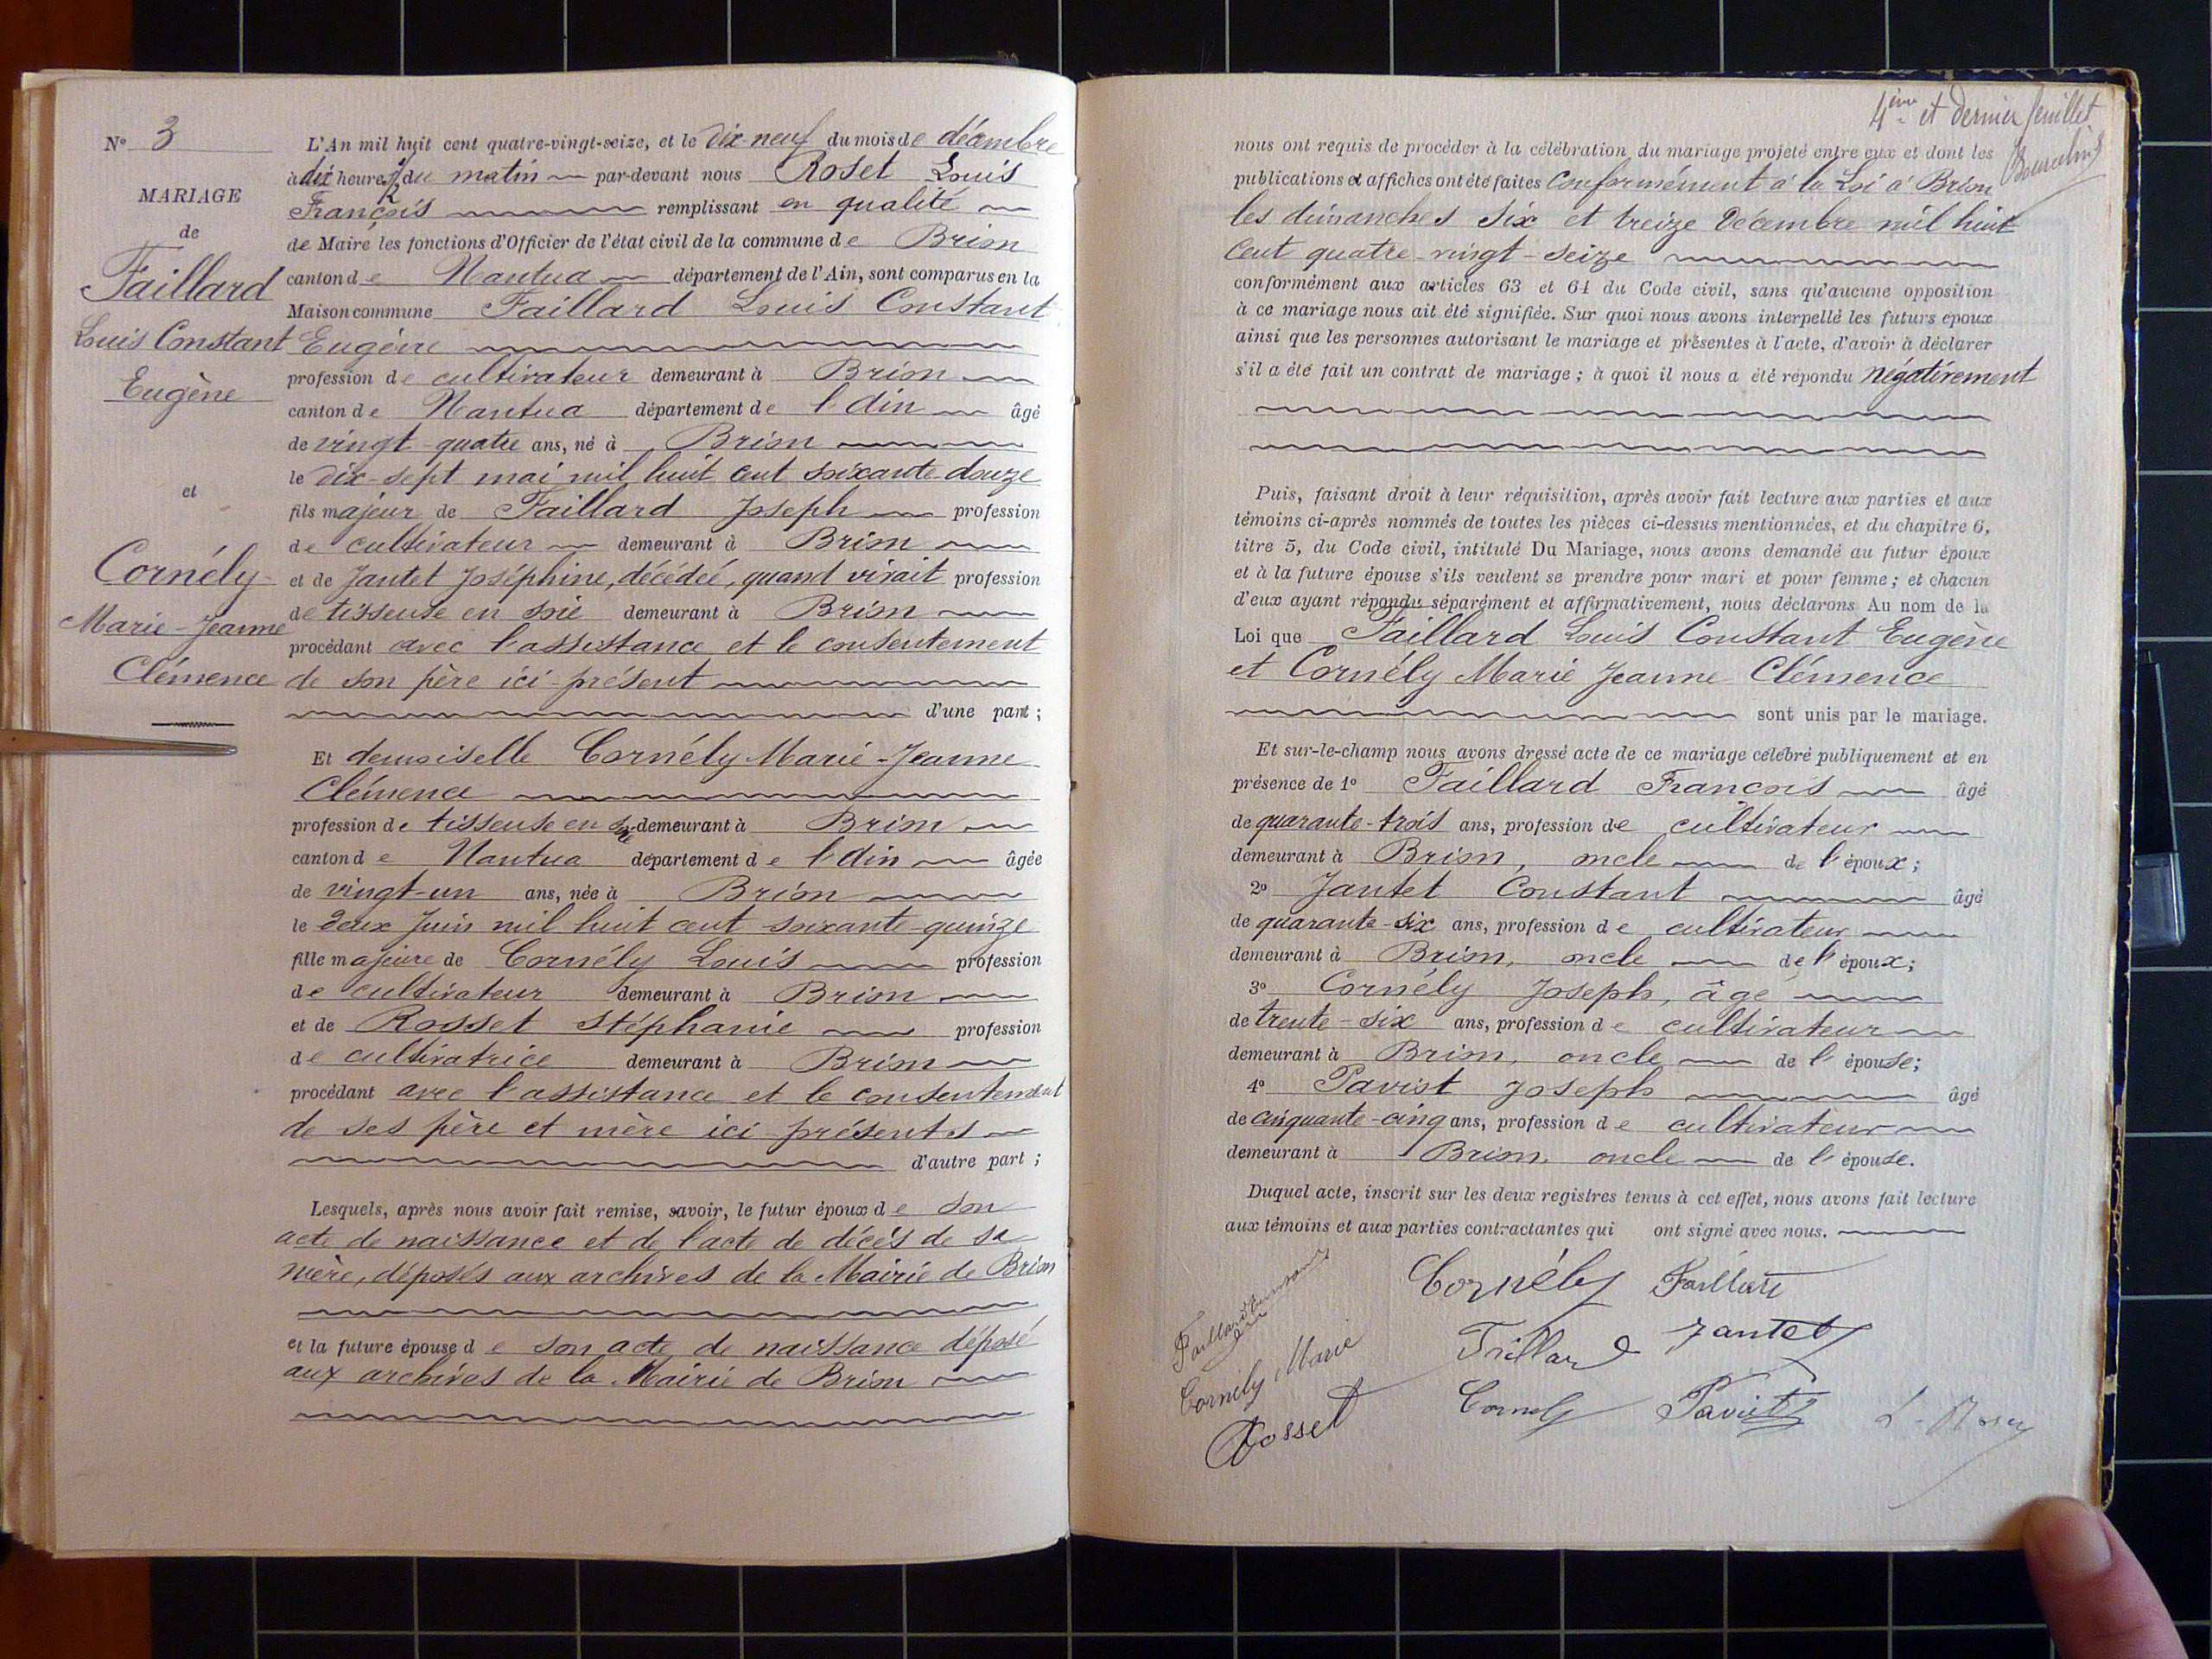 N° 3
MARIAGE
de
Faillard
Louis Constant
Eugène
et
Cornély
Marie-Jeanne
Clémence
L'An mil huit cent quatre-vingt-seize, et le dix-neuf du mois de décembre
à dix heures ½ du matin par-devant nous Roset Louis
François remplissant en qualité
de Maire les fonctions d'Officier de l'état civil de la commune de Brion
canton de Nantua département de l'Ain, sont comparus en la
Maison commune Faillard Louis Constant
Eugène
profession de cultivateur demeurant à Brion
canton de Nantua département de l'Ain âgé
de vingt-quatre ans, né à Brion
le dix-sept mai mil huit cent soixante-douze
fils majeur de Faillard Joseph profession
de cultivateur demeurant à Brion
et de Jantet Joséphine, décédée, quand vivait profession
de tisseuse en soie demeurant à Brion
procédant avec l'assistance et le consentement
de son père ici présent
d'une part ;
Et demoiselle Cornély Marie-Jeanne
Clémence
profession de tisseuse en soie demeurant à Brion
canton de Nantua département de l'Ain âgée
de vingt-un ans, née à Brion
le deux Juin mil huit cent soixante-quinze
fille majeure de Cornély Louis profession
de cultivateur demeurant à Brion
et de Rosset Stéphanie profession
de cultivatrice demeurant à Brion
procédant avec l'assistance et le consentement
de ses père et mère ici présents
d'autre part ;
Lesquels, après nous avoir fait remise, savoir, le futur époux de son
acte de naissance et de l'acte de décès de sa
mère, déposés aux archives de la Mairie de Brion
et la future épouse de son acte de naissance déposé
aux archives de la Mairie de Brion
4ème et dernier feuillet
nous ont requis de procéder à la célébration du mariage projeté entre eux et dont les
publications et affiches ont été faites Conformément à la Loi à Brion
les dimanches six et treize Décembre mil huit
cent quatre-vingt-seize
conformément aux articles 63 et 64 du Code civil, sans qu'aucune opposition
à ce mariage nous ait été signifiée. Sur quoi nous avons interpellé les futurs epoux
ainsi que les personnes autorisant le mariage et présentes à l'acte, d'avoir à déclarer
s'il a été fait un contrat de mariage ; à quoi il nous a été répondu négativement
Puis, faisant droit à leur réquisition, après avoir fait lecture aux parties et aux
témoins ci-après nommés de toutes les pièces ci-dessus mentionnées, et du chapitre 6,
titre 5, du Code civil, intitulé Du Mariage, nous avons demandé au futur époux
et à la future épouse s'ils veulent se prendre pour mari et pour femme ; et chacun
d'eux ayant répondu séparément et affirmativement, nous déclarons Au nom de la
Loi que Faillard Louis Constant Eugène
et Cornély Marie Jeanne Clémence
sont unis par le mariage.
Et sur-le-champ nous avons dressé acte de ce mariage célébré publiquement et en
présence de 1° Faillard François âgé
de quarante-trois ans, profession de cultivateur
demeurant à Brion, oncle de l'époux ;
2° Jantet Constant âgé
de quarante-six ans, profession de cultivateur
demeurant à Brion, oncle de l'époux ;
3° Cornély Joseph, âgé
de trente-six ans, profession de cultivateur
demeurant à Brion, oncle de l'épouse ;
4° Paviot Joseph âgé
de cinquante-cinq ans, profession de cultivateur
demeurant à Brion, oncle de l'épouse.
Duquel acte, inscrit sur les deux registres tenus à cet effet, nous avons fait lecture
aux témoins et aux parties contractantes qui ont signé avec nous.
Cornély Faillard
Faillard Jantet
Cornély Marie
Cornely Paviot
Rosset